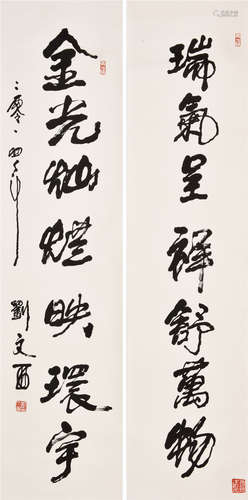 瑞氣呈祥舒萬物
金光灿爛映環宇
二零一四年
劉文西